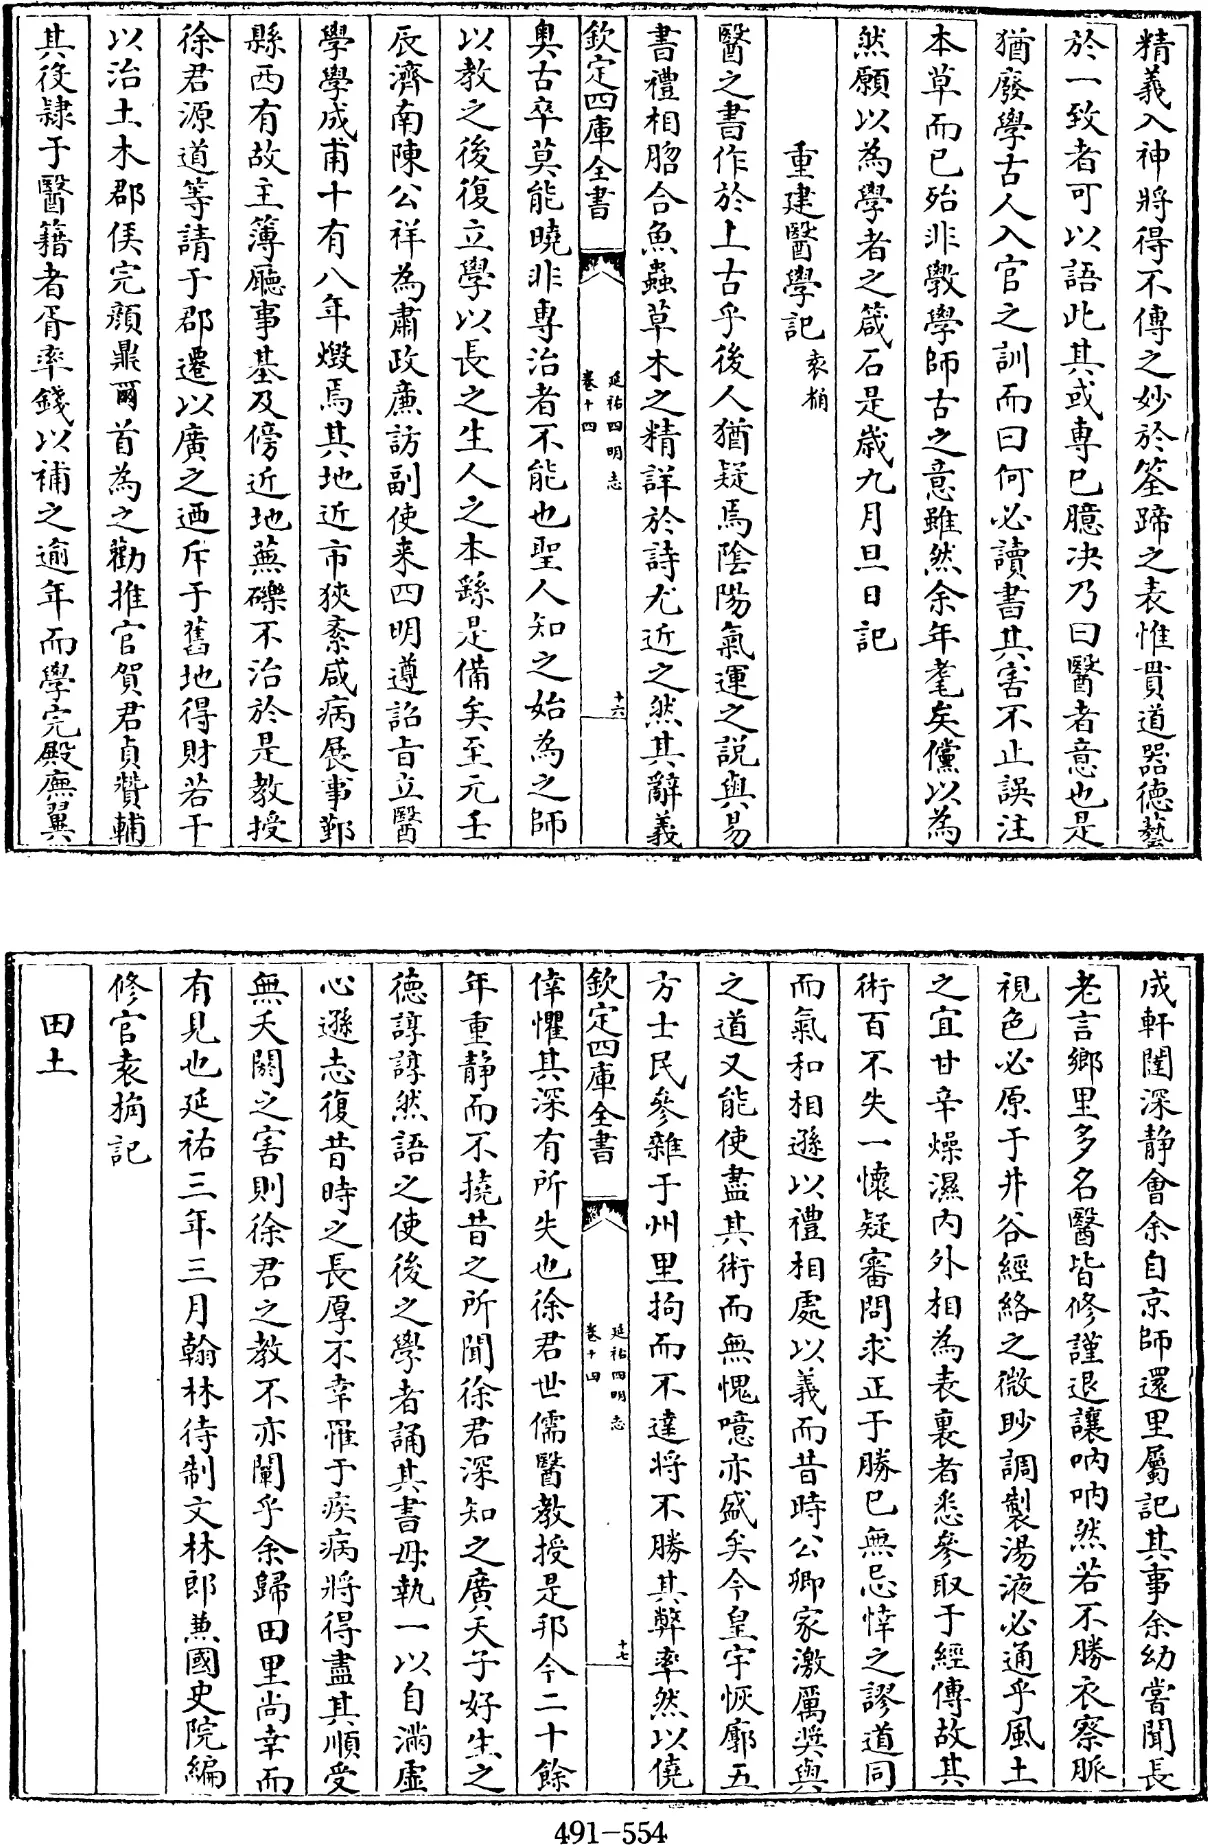 精義入神將得不傳之妙於筌蹄之表惟貫道器德藝
於一致者可以語此其或專已臆决乃曰醫者意也是
猶廢學古人入官之訓而曰何必讀書其害不止誤注
本草而已殆非斆學師古之意雖然余年耄矣儻以為
然願以為學者之箴石是歲九月旦日記
重建醫學記 袁桷
醫之書作於上古乎後人猶疑焉陰陽氣運之説與易
書禮相脗合魚蟲草木之精詳於詩尤近之然其辭義
欽定四庫全書 延祐四明志 卷十四 十六
奥古卒莫能曉非專治者不能也聖人知之始為之師
以教之後復立學以長之生人之本繇是備矣至元壬
辰濟南陳公祥為肅政亷訪副使来四明遵詔旨立醫
學學成甫十有八年燬焉其地近市狹紊咸病展事鄞
縣西有故主簿廳事基及傍近地蕪礫不治於是教授
徐君源道等請于郡遷以廣之迺斥于舊地得財若干
以治土木郡侯完顔鼎爾首為之勸推官賀君貞贊輔
其後隷于醫籍者胥率錢以補之逾年而學完殿廡翼
成軒闥深静會余自京師還里屬記其事余幼嘗聞長
老言鄉里多名醫皆修謹退讓呐呐然若不勝衣察脈
視色必原于井谷經絡之微眇調製湯液必通乎風土
之宜甘辛燥濕内外相為表裏者悉參取于經傳故其
術百不失一懷疑審問求正于勝已無忌悻之謬道同
而氣和相遜以禮相處以義而昔時公卿家激厲奬與
之道又能使盡其術而無愧噫亦盛矣今皇宇恢廓五
方士民參雜于州里拘而不達將不勝其弊率然以僥
欽定四庫全書 延祐四明志 卷十四 十七
倖懼其深有所失也徐君世儒醫教授是邦今二十餘
年重静而不撓昔之所聞徐君深知之廣天子好生之
德諄諄然語之使後之學者誦其書毋執一以自滿虛
心遜志復昔時之長厚不幸罹于疾病將得盡其順受
無夭閼之害則徐君之教不亦闡乎余歸田里尚幸而
有見也延祐三年三月翰林待制文林郎兼國史院編
修官袁桷記
田土
491-554